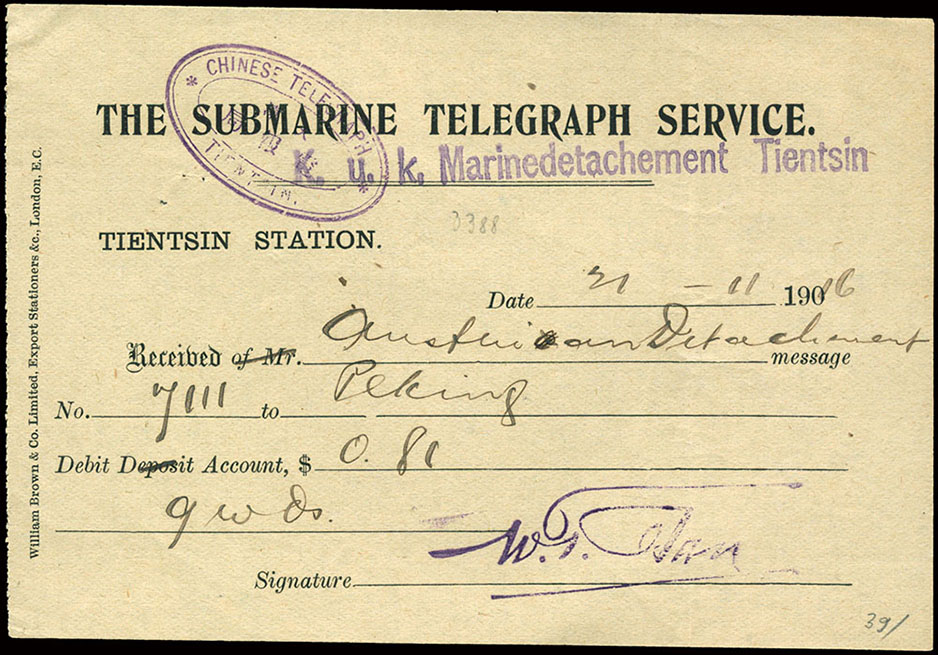 CHINESE TELEGRAPH
TIENTSIN.
THE SUBMARINE TELEGRAPH SERVICE.
K. u. k. Marinedetachement Tientsin
3388
TIENTSIN STATION.
Date 21 - 11 190 16
Received of Mr. Austrian Detachement message
No. 7111 to Peking
Debit Deposit Account, $ 0. 81
9 wds.
Signature W.T.
39/
William Brown & Co. Limited, Export Stationers &c., London, E.C.